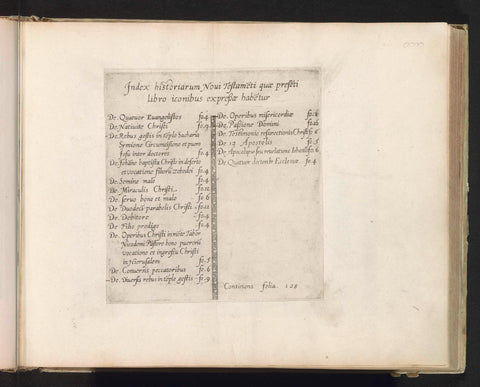 Index historiarum Noui Testamēti quæ preseti
libro iconibus expressæ habētur
De. Quatuor Euangelistis fo. 4
De. Natiuitate Christi fo. 9
De. Rebus gestis in tēplo Sacharia
Symione Circumcisione et puero
Iesu inter doctores fo. 4
De. Iohāne baptista Christi in deserto
et vocatione filiorū zebedei fo. 4
De. Semine malo fo. 4
De. Miraculis Christi fo. 12
De. seruo bono et malo fo. 6
De. Duodeci parabolis Christi fo. 12
De. Debitore fo. 4
De. Filio prodigo fo. 4
De. Operibus Christi in mōte Tabor
Nicodemi Pastore bono puerorū
vocatione et ingressu Christi
in Hierusalem fo. 5
De. Conuersis peccatoribus fo. 6
De. Diuersis rebus in tēplo gestis fo. 9
De. Operibus misericordiæ fo. 8
De. Passione Domini
De. Testimonio resurrectionis Christi
De. 12 Apostolis fo. 5
De. Apocalipsi seu reuelatione Iohannis
De. Quatuor doctorib. Ecclesiæ fo. 4
Continens folia. 128